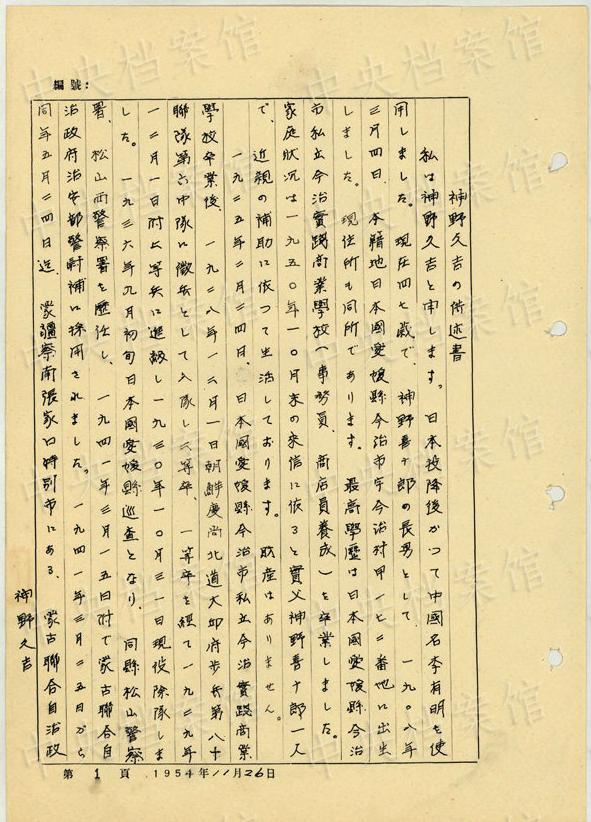 編號：
神野久吉の供述書
私は神野久吉と申します。日本投降後かつて中國名李有明を使
用しました。現在四七歳で、神野喜十郎の長男として、一九〇八年
三月四日、本籍地日本國愛媛縣今治市字今治村甲一七二番地に出生
しました。現住所も同所であります。最高學歷は日本國愛媛縣今治
市私立今治實踐商業學校(事務員、商店員養成)を卒業しました。
家庭狀況は一九五〇年一〇月末の來信に依ると實父神野喜十郎一人
で、近親の補助に依つて生活しております。財産はありません。
一九二五年三月二四日、日本國愛媛縣今治市私立今治實踐商業
學校卒業後、一九二八年一二月一日朝鮮慶尚北道大邱府步兵第八十
聯隊第六中隊に徵兵として入隊し二等卒、一等卒を經て一九二九年
一二月一日附上等兵に進級し一九三〇年一〇月三一日現役除隊しま
した。一九三六年九月初旬日本國愛媛縣巡查となり、同縣松山警察
署、松山西警察署を歷任し、一九四一年三月一五日附で蒙古聯合自
治政府治安部警尉補に採用されました。一九四一年三月二五日から
同年五月二四日迄、蒙疆察南張家口特別市にある、蒙古聯合自治政
神野久吉
第 1 頁 1954年11月26日
中央档案馆